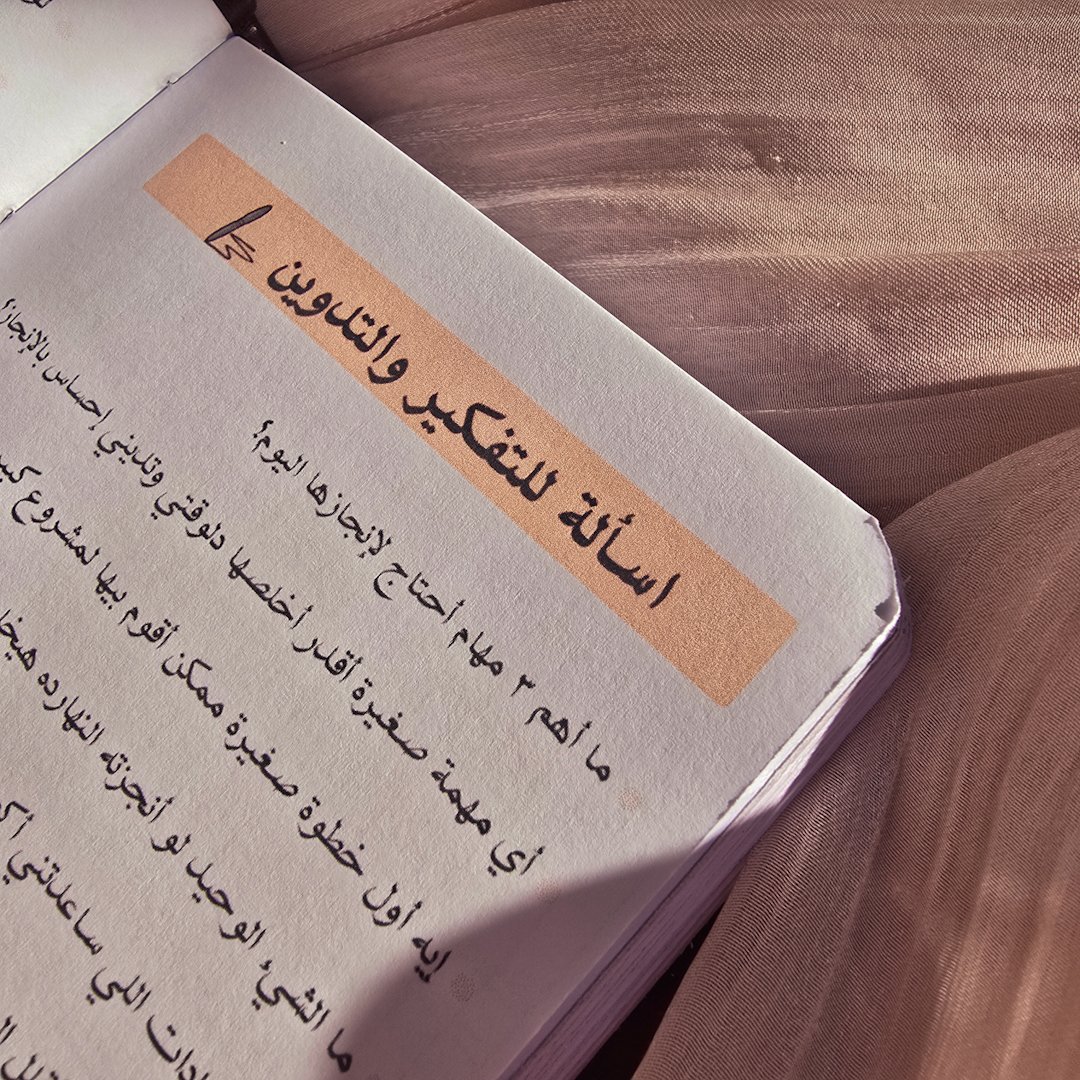 اسألة للتفكير والتدوين
ما أهم ٣ مهام أحتاج لإنجازها اليوم؟
أي مهمة صغيرة أقدر أخلصها دلوقتي وتديني إحساس بالإنجاز؟
إيه أول خطوة صغيرة ممكن أقوم بيها لمشروع
ما الشيء الوحيد لو أنجزته النهارده
اللي ساعدتني